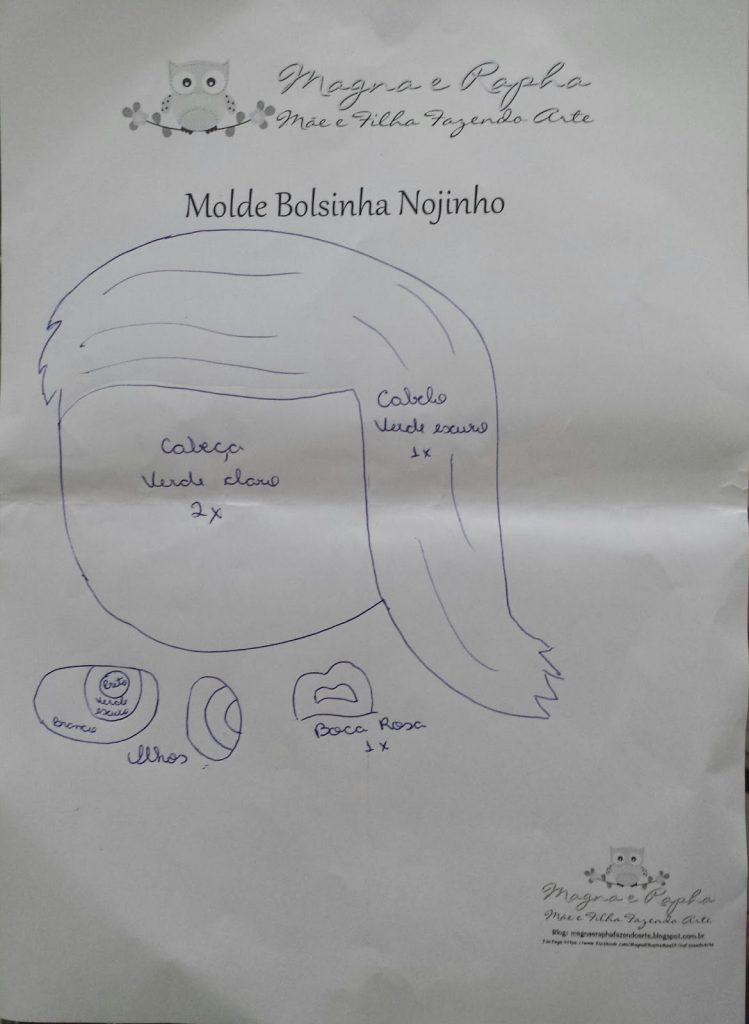 Magna e Rapha
Mãe e Filha Fazendo Arte
Molde Bolsinha Nojinho
Cabelo
Verde escuro
1x
Cabeça
Verde claro
2x
Preto
Verde
escuro
Branco
Olhos
Boca Rosa
1x
Magna e Rapha
Mãe e Filha Fazendo Arte
Blog: magnaeraphafazendoarte.blogspot.com.br